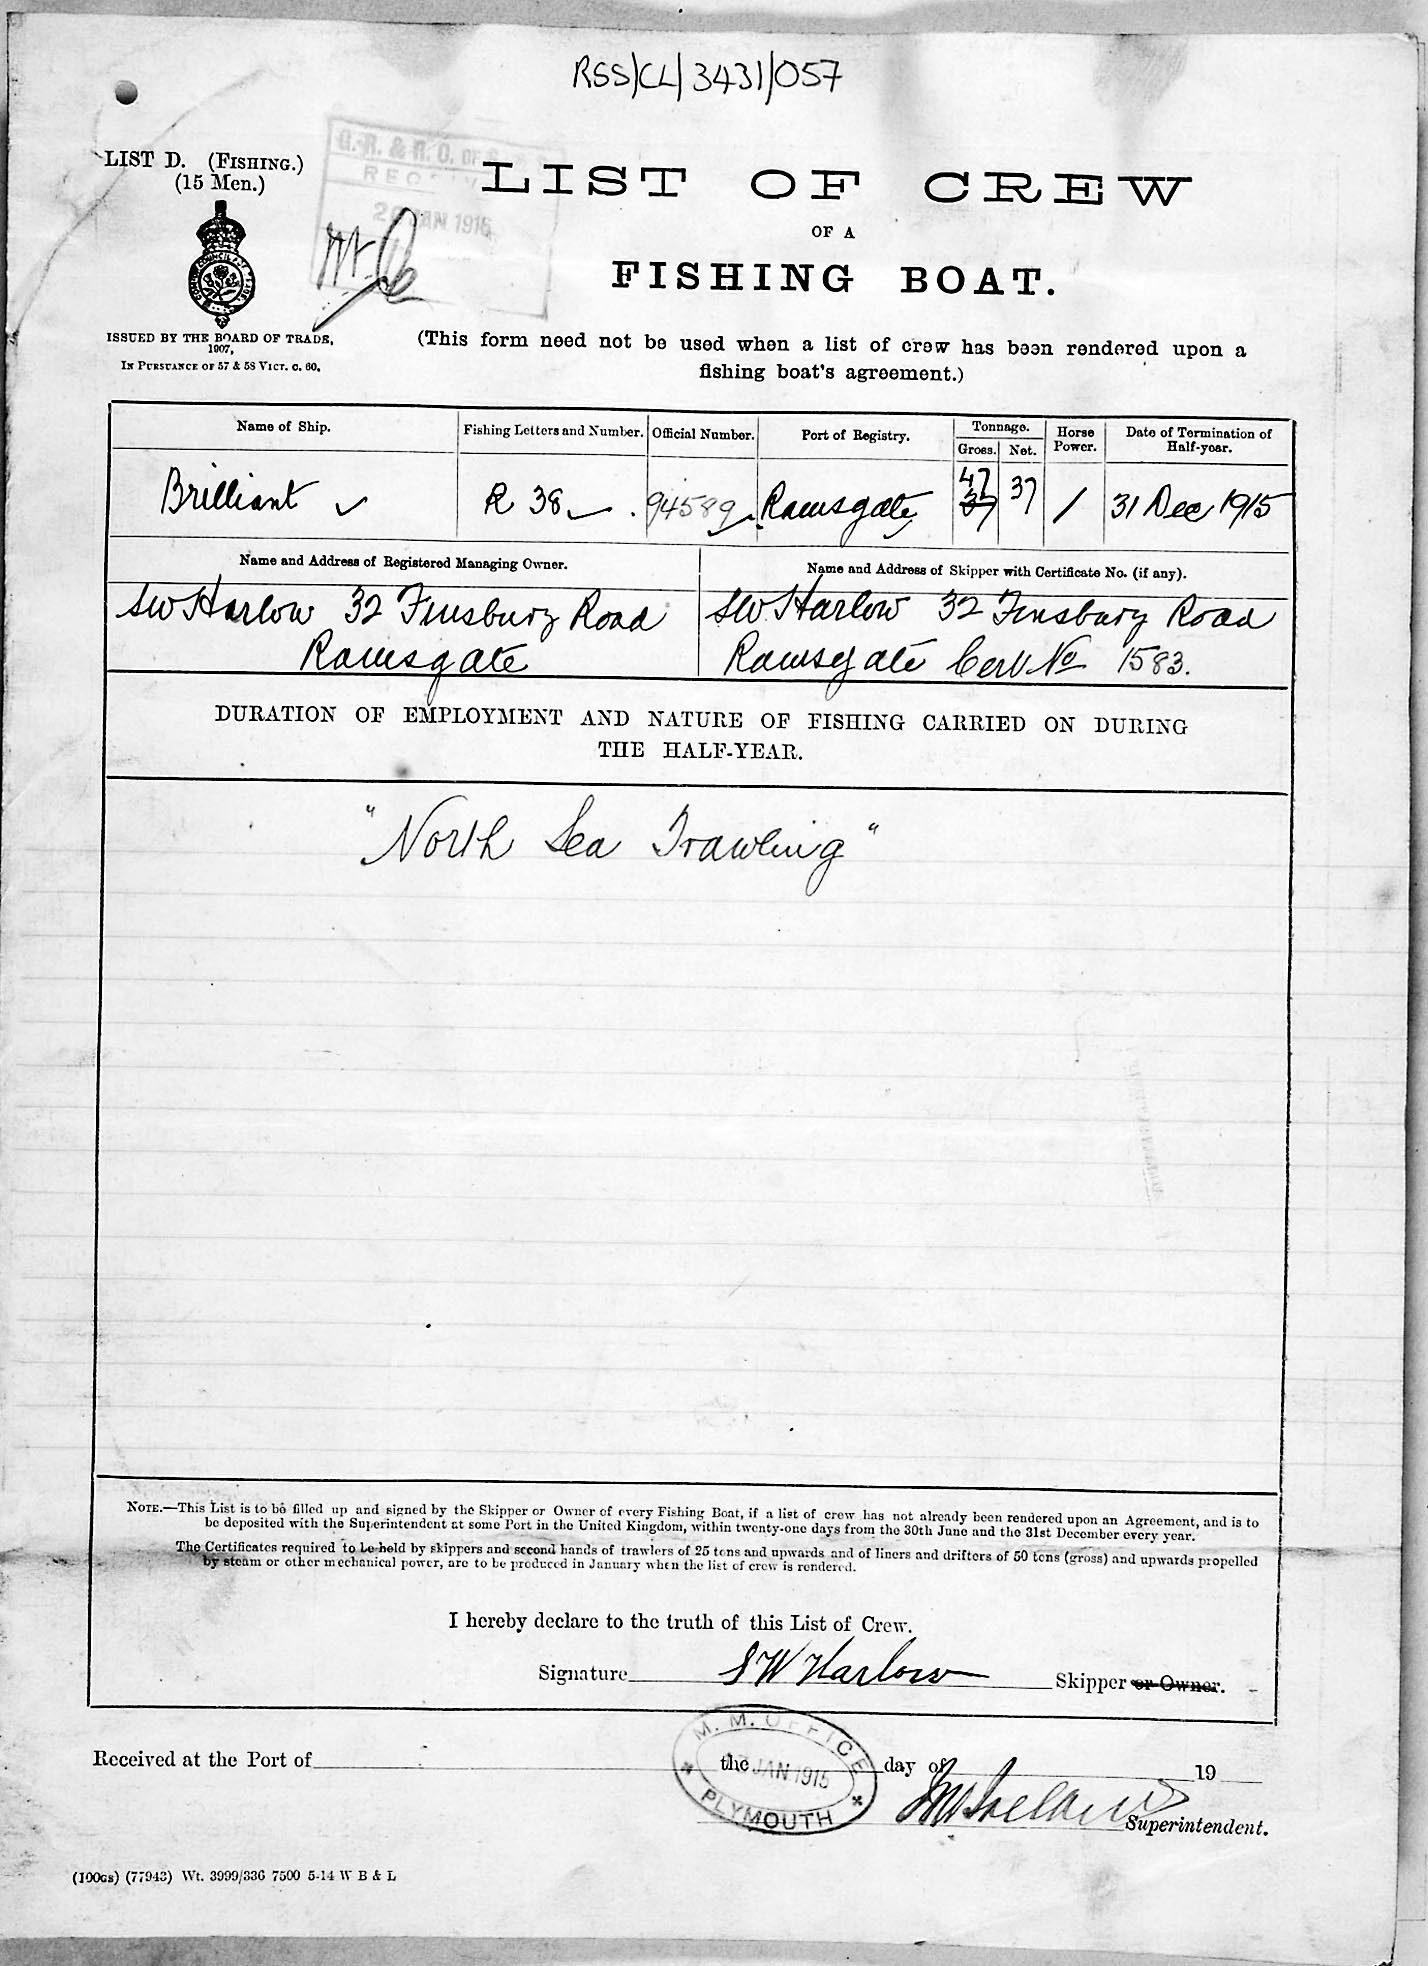 RSS/CL/3431/057
LIST D. (FISHING.)
(15 MEN.)
G.R. & R.O. OF
JAN 1916
LIST OF CREW
OF A
FISHING BOAT.
ISSUED BY THE BOARD OF TRADE,
1907,
IN PURSUANCE OF 57 & 58 VICT. C. 60.
(This form need not be used when a list of crew has been rendered upon a
fishing boat's agreement.)
Name of Ship. Fishing Letters and Number. Official Number. Port of Registry. Tonnage. Gross. Net. Horse Power. Date of Termination of Half-year.
Brilliant ✓ R 38 ✓ 94589 Ramsgate 47 37 37 / 31 Dec 1915
Name and Address of Registered Managing Owner. Name and Address of Skipper with Certificate No. (if any).
SW Harlow 32 Finsbury Road
Ramsgate
SW Harlow 32 Finsbury Road
Ramsgate Cert No 1583.
DURATION OF EMPLOYMENT AND NATURE OF FISHING CARRIED ON DURING
THE HALF-YEAR.
"North Sea Trawling"
NOTE.—This List is to be filled up and signed by the Skipper or Owner of every Fishing Boat, if a list of crew has not already been rendered upon an Agreement, and is to
be deposited with the Superintendent at some Port in the United Kingdom, within twenty-one days from the 30th June and the 31st December every year.
The Certificates required to be held by skippers and second hands of trawlers of 25 tons and upwards and of liners and drifters of 50 tons (gross) and upwards propelled
by steam or other mechanical power, are to be produced in January when the list of crew is rendered.
I hereby declare to the truth of this List of Crew.
Signature SW Harlow Skipper or Owner.
M. M. OFFICE
JAN 1915
PLYMOUTH
Received at the Port of the day of 19
Superintendent.
(100GS) (77943) Wt. 3999/336 7500 5-14 W B & L